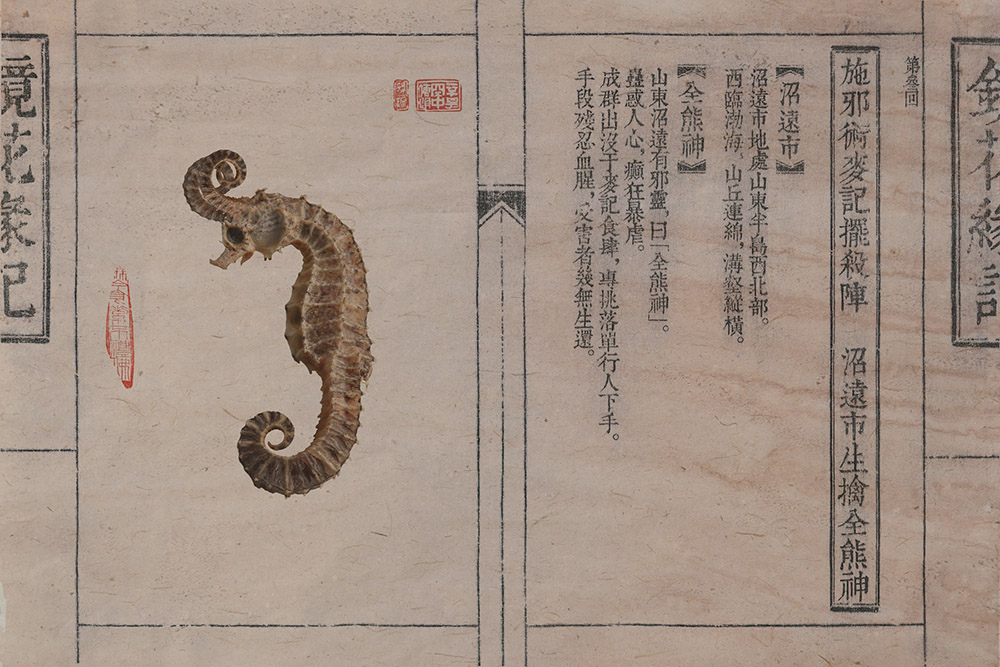 第叁回
施邪術麥記擺殺陣　沼遠市生擒全熊神
【沼遠市】
沼遠市地處山東半島西北部。
西臨渤海，山丘連綿，溝壑縱橫。
【全熊神】
山東沼遠有邪靈，曰「全熊神」。
蠱惑人心，癲狂暴虐。
成群出沒于麥記食肆，專挑落單行人下手。
手段殘忍血腥，受害者幾無生還。
鏡花緣記